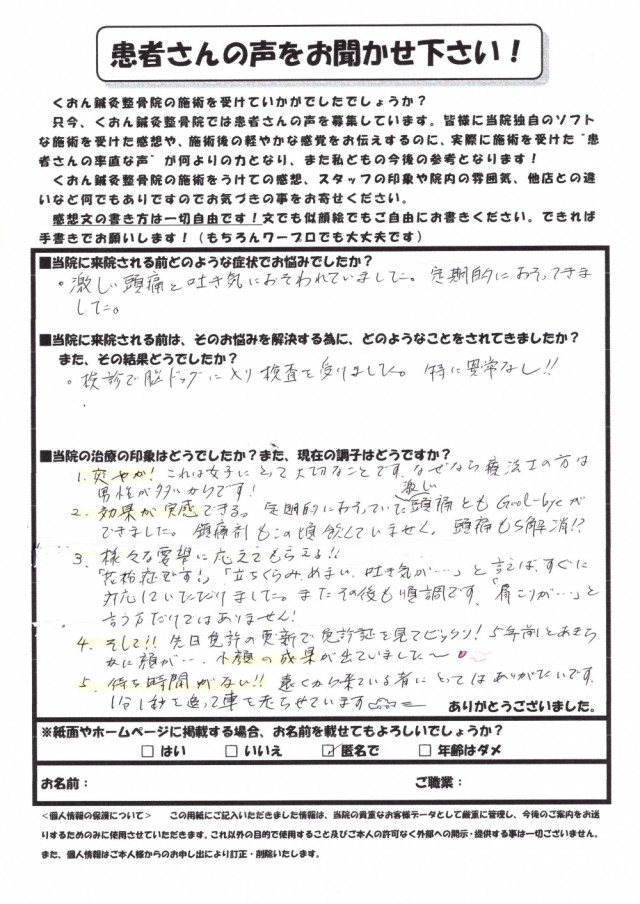 患者さんの声をお聞かせ下さい！
くおん鍼灸整骨院の施術を受けていかがでしたでしょうか？
只今、くおん鍼灸整骨院では患者さんの声を募集しています。皆様に当院独自のソフト
な施術を受けた感想や、施術後の軽やかな感覚をお伝えするのに、実際に施術を受けた“患
者さんの率直な声”が何よりの力となり、また私どもの今後の参考となります！
くおん鍼灸整骨院の施術をうけての感想、スタッフの印象や院内の雰囲気、他店との違
いなど何でもありですのでお気づきの事をお寄せください。
感想文の書き方は一切自由です！文でも似顔絵でもご自由にお書きください。できれば
手書きでお願いします！（もちろんワープロでも大丈夫です）
■当院に来院される前どのような症状でお悩みでしたか？
。激しい頭痛と吐き気におそわれていました。定期的におそってきま
した。
■当院に来院される前は、そのお悩みを解決する為に、どのようなことをされてきましたか？
また、その結果どうでしたか？
。検診で脳ドッグに入り検査を受けました。特に異常なし!!
■当院の治療の印象はどうでしたか？また、現在の調子はどうですか？
1. 爽やか! これは女子にとって大切なことです。なぜなら療法士の方は
男性が多いからです!
2. 効果が実感できる。定期的におそっていた激しい頭痛ともGood-byeが
できました。鎮痛剤もこの頃飲んでいません。頭痛もち解消!?
3. 様々な要望に応えてもらえる!!
「花粉症です!」「立ちくらみ、めまい、吐き気が…」と言えば、すぐに
対応していただけました。またその後も順調です。「肩こりが…」と
言う方だけではありません!
4. そして!! 先日免許の更新で免許証を見てビックリ! 5年前とあきら
かに顔が… 小顔の成果が出ていました〜
5. 待ち時間がない!! 遠くから来ている者にとってはありがたいです。
1分1秒を追って車を走らせています
ありがとうございました。
※紙面やホームページに掲載する場合、お名前を載せてもよろしいでしょうか？
□ はい □ いいえ ☑ 匿名で □ 年齢はダメ
お名前： ご職業：
＜個人情報の保護について＞ この用紙にご記入いただきました情報は、当院の貴重なお客様データとして厳重に管理し、今後のご案内をお送
りするためのみに使用させていただきます。これ以外の目的で使用すること及びご本人の許可なく外部への開示・提供する事は一切ございません。
また、個人情報はご本人様からのお申し出により訂正・削除いたします。